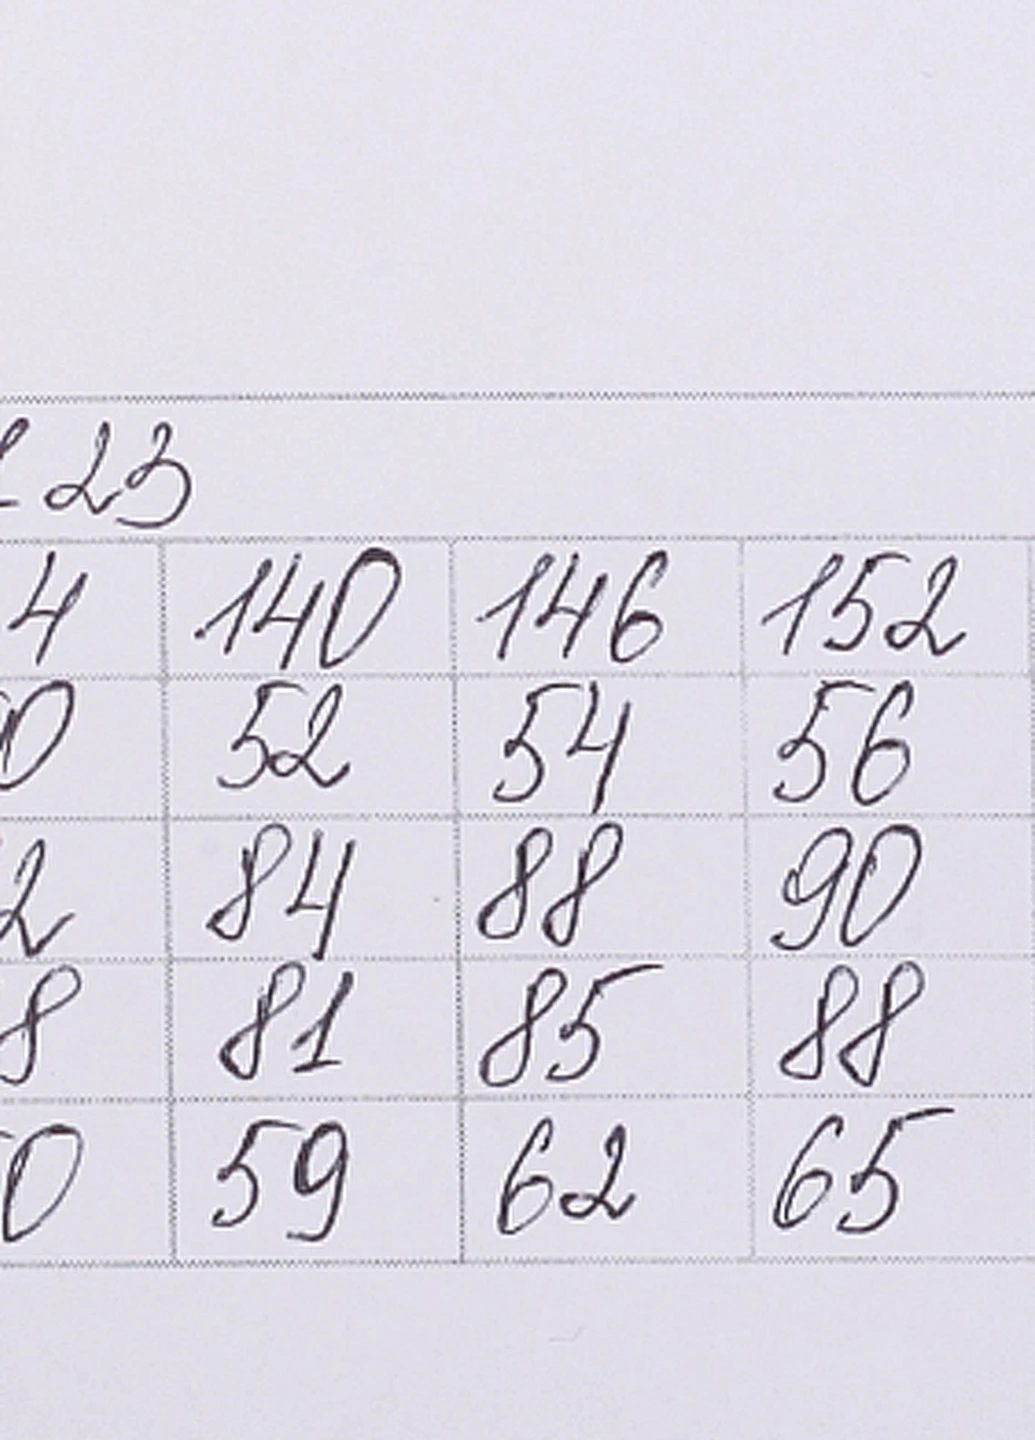 23
4 140 146 152
0 52 54 56
2 84 88 90
8 81 85 88
0 59 62 65